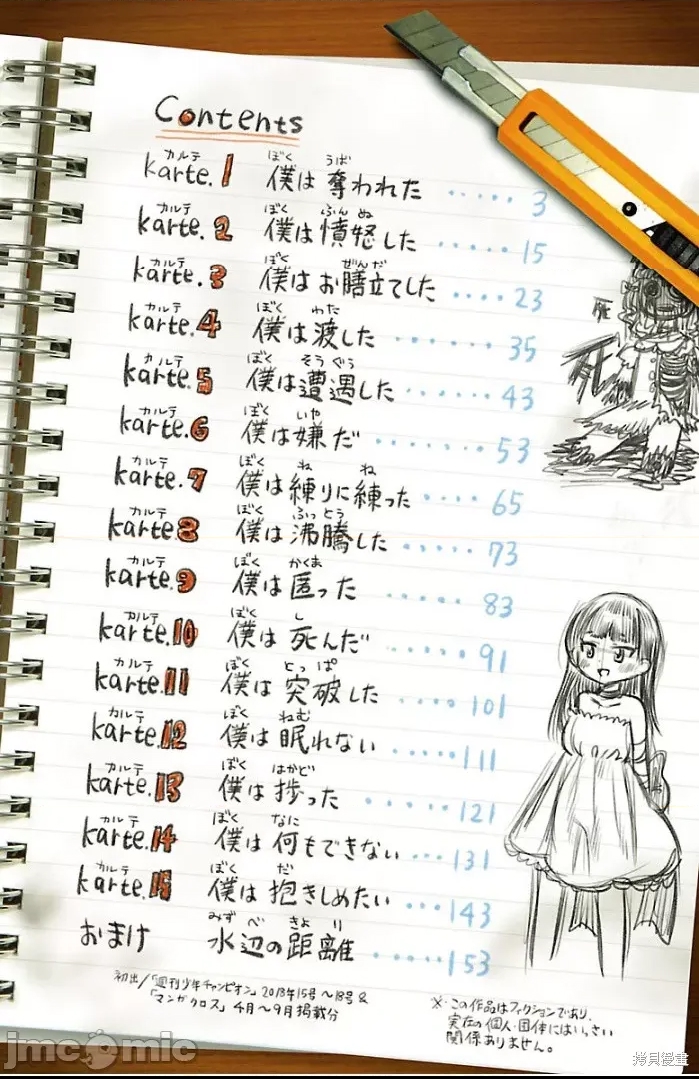 jmcomic
Contents
karte.1 僕は奪われた ・・・・・ 3
karte.2 僕は憤怒した ・・・・・ 15
karte.3 僕はお膳立てした ・・・・ 23
karte.4 僕は渡した ・・・・・・ 35
karte.5 僕は遭遇した ・・・・ 43
karte.6 僕は嫌だ ・・・・・・ 53
karte.7 僕は練りに練った ・・・・ 65
karte.8 僕は沸騰した ・・・・ 73
karte.9 僕は匿った ・・・・・ 83
karte.10 僕は死んだ ・・・・・ 91
karte.11 僕は突破した ・・・・ 101
karte.12 僕は眠れない ・・・・・ 111
karte.13 僕は捗った ・・・・・ 121
karte.14 僕は何もできない ・・・ 131
karte.15 僕は抱きしめたい ・・・・ 143
おまけ 水辺の距離 ・・・・ 153
初出/「週刊少年チャンピオン」2018年15号〜18号&
「マンガクロス」4月〜9月掲載分
※・この作品はフィクションであり、
実在の個人・団体にはいっさい
関係ありません。
jmcomic
拷貝漫畫